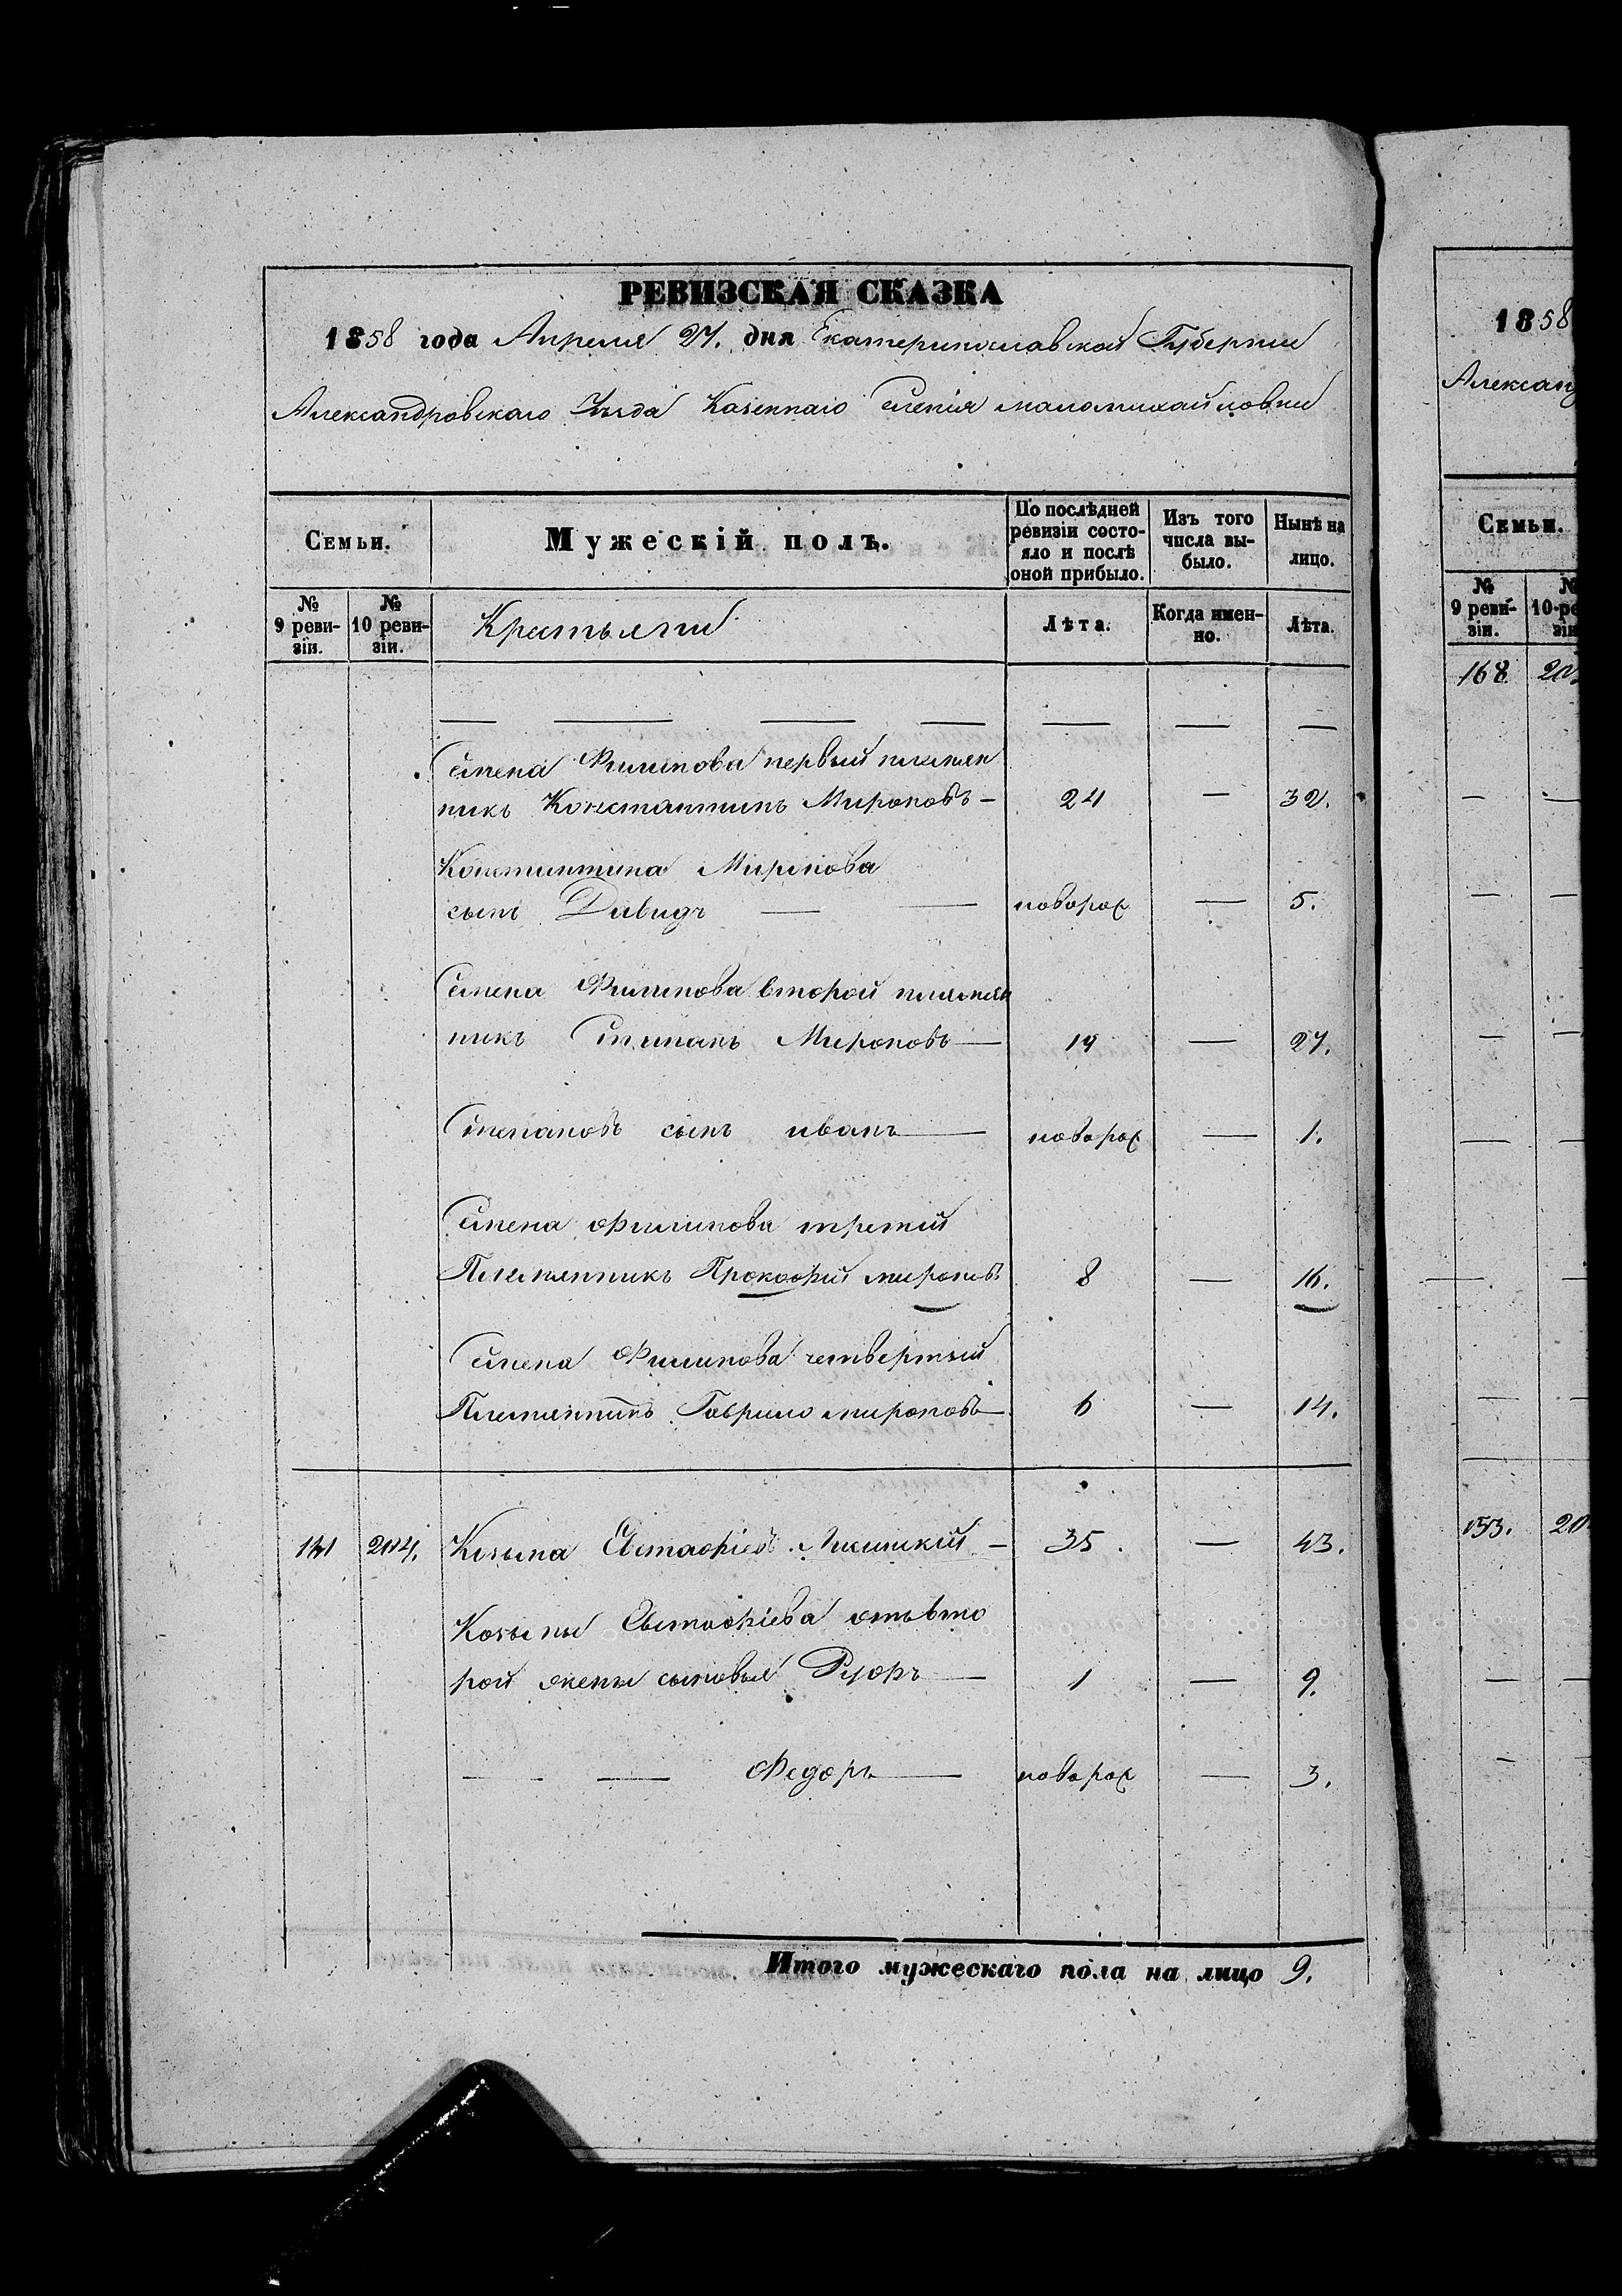 РЕВИЗСКАЯ СКАЗКА
1858 года Апреля 27. дня Екатеринославской Губернии
Александровскаго Уезда Казеннаго Селенія маломихайловки
Семьи.
Мужескій полъ.
По послѣдней ревизіи состояло и послѣ оной прибыло.
Изъ того числа выбыло.
Нынѣ на лицо.
№ 9 ревизіи.
№ 10 ревизіи.
Крестьяне
Лѣта.
Когда именно.
Лѣта.
— — — — — — —
Семена Филипова первый племян
никъ Константинъ Мироновъ — 24 — 32.
Константина Миронова
сынъ Давидъ — — новорож — 5.
Семена Филипова второй племян
никъ Степанъ Мироновъ — 19 — 27.
Степановъ сынъ иванъ — новорож — 1.
Семена Филипова третий
Племянникъ Прокофий мироновъ 8 — 16.
Семена Филипова четвертый
Племянникъ Гаврило мироновъ — 6 — 14.
204. Козьма Евстафіевъ — 35. — 43.
Козьмы Евстафіева отъ вто
рой жены сыновья — 1 — 9.
— — Федоръ — новорож — 3.
Итого мужескаго пола на лицо 9.
1858
Семьи.
№ 9 ревизіи.
168
153.